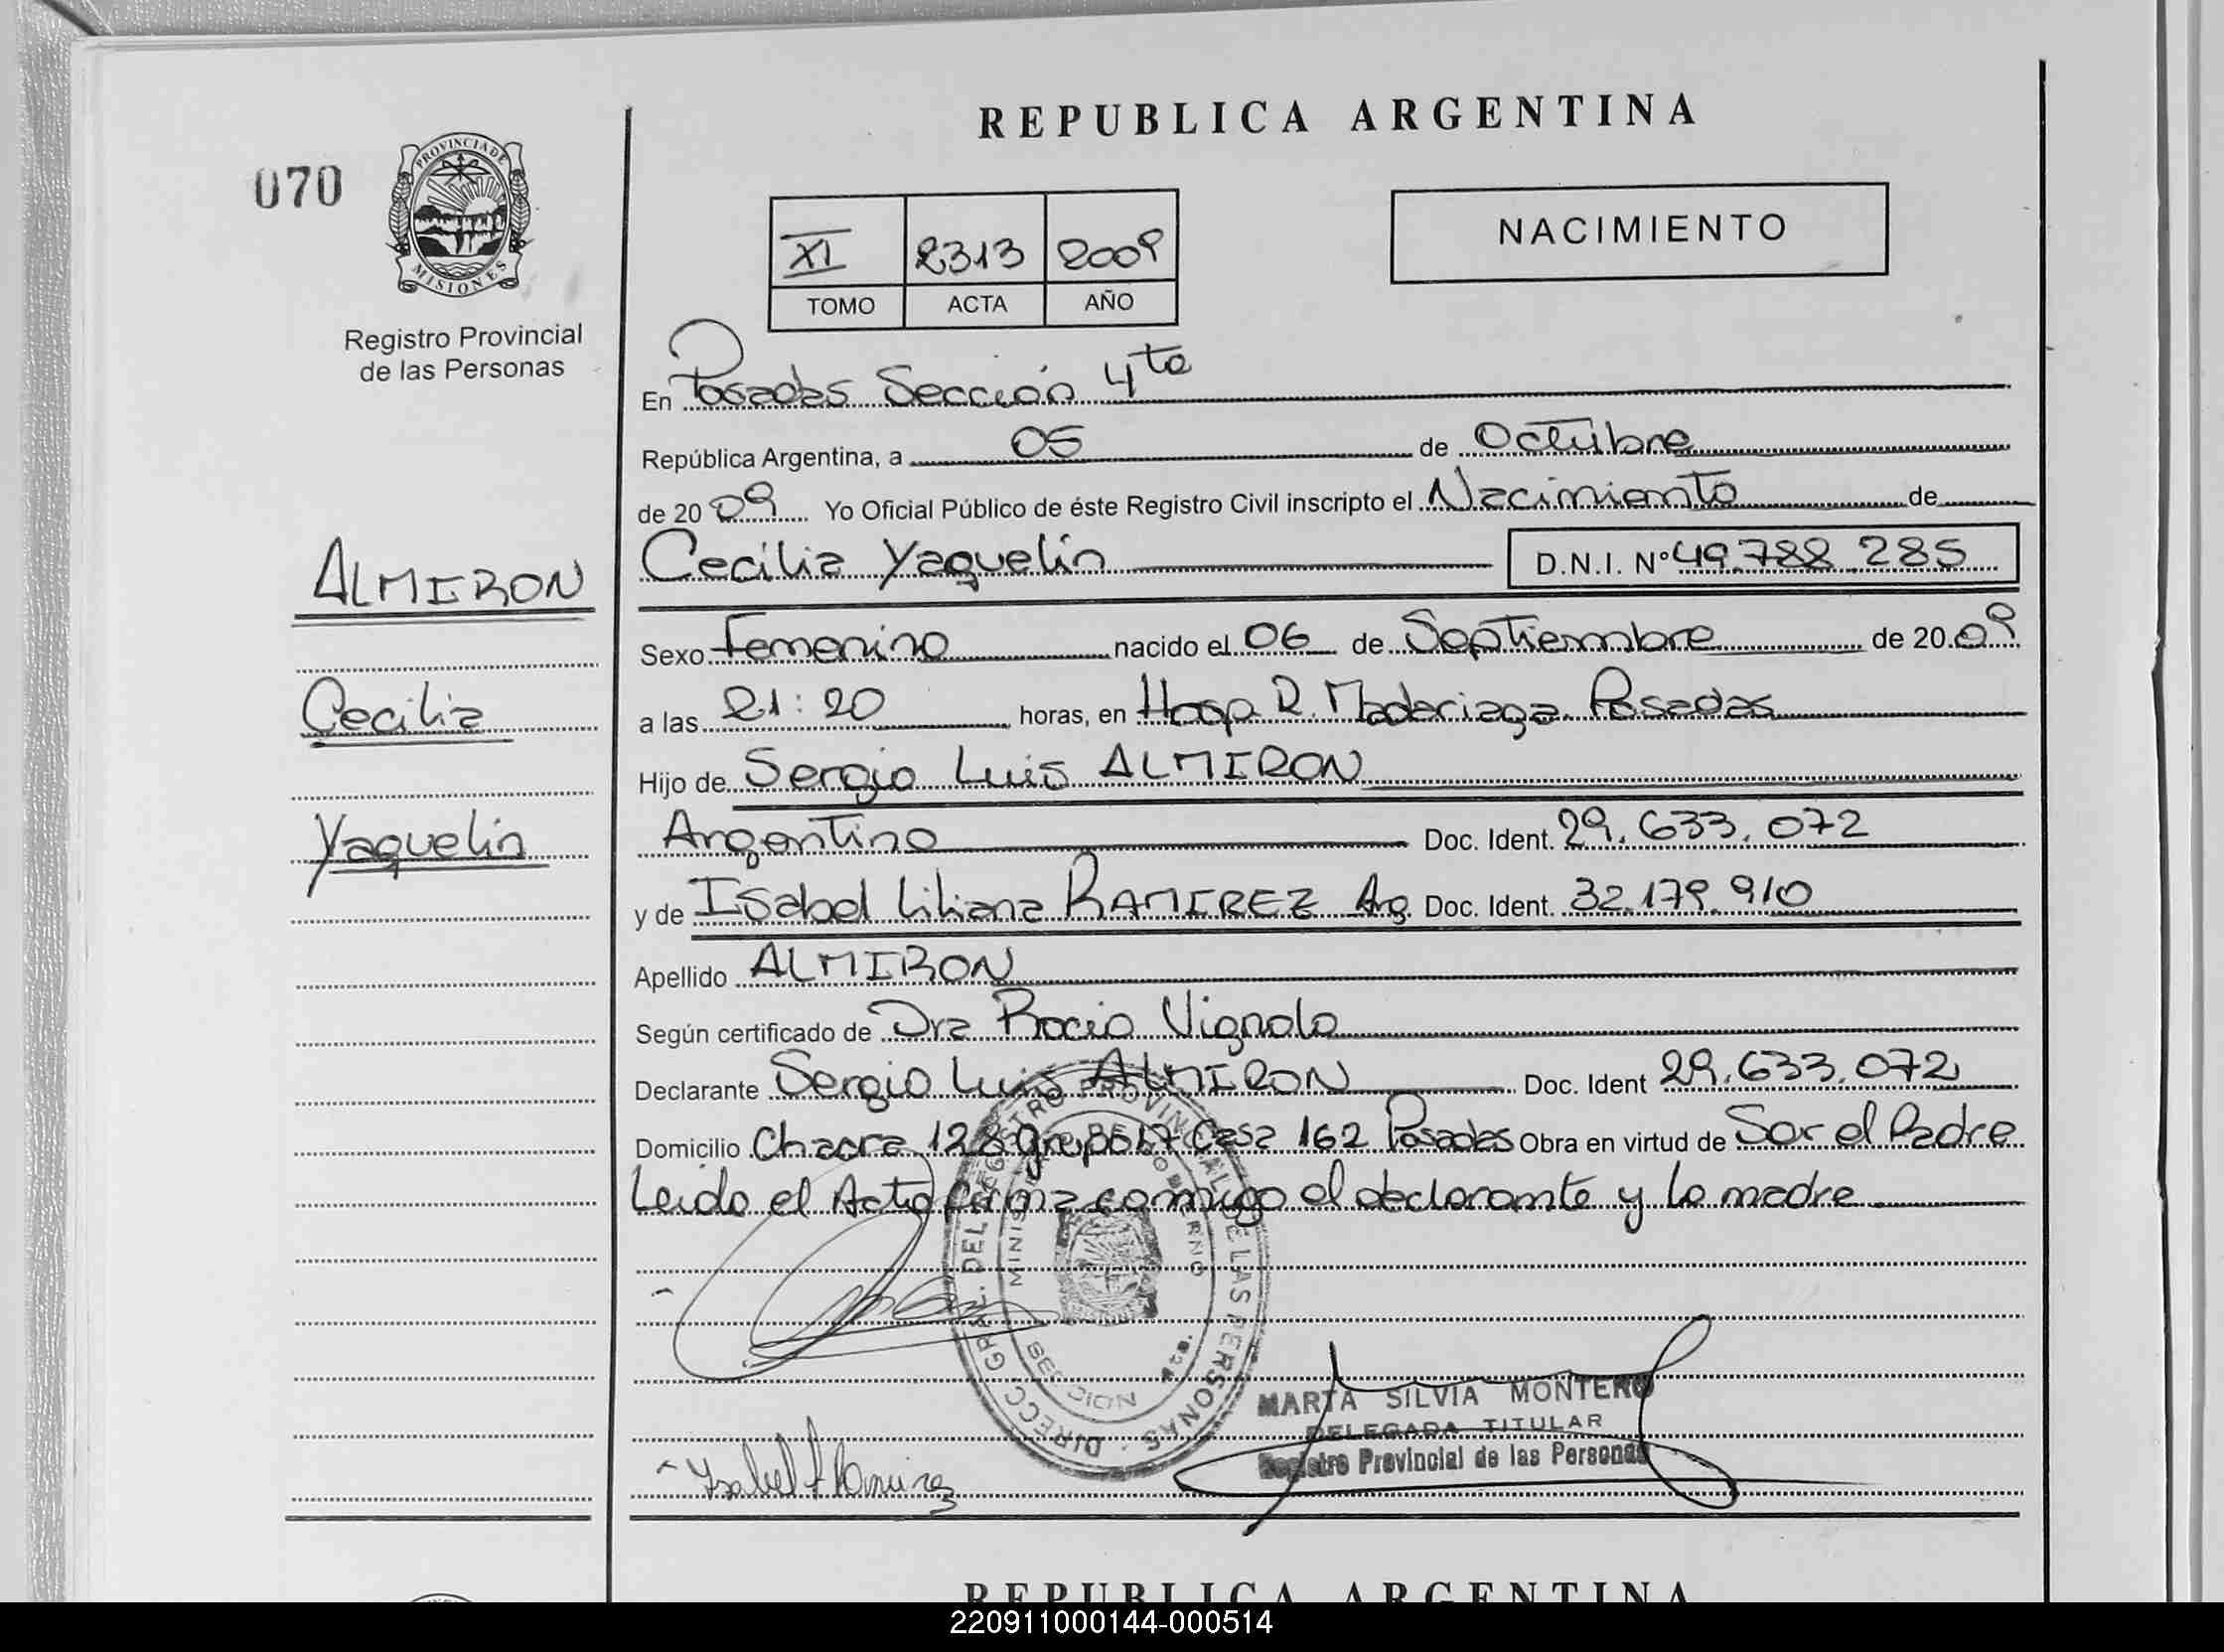 REPUBLICA ARGENTINA
070
PROVINCIA DE
MISIONES
Registro Provincial
de las Personas
XI 2313 2009
TOMO ACTA AÑO
NACIMIENTO
En Posadas Sección 4ta
República Argentina, a 05 de Octubre
de 2009 Yo Oficial Público de éste Registro Civil inscripto el Nacimiento de
Cecilia Yaquelin D.N.I. Nº 49.788.285
ALMIRON
Cecilia
Yaquelin
Sexo Femenino nacido el 06 de Septiembre de 2009
a las 21:20 horas, en Hosp R. Madariaga Posadas
Hijo de Sergio Luis ALMIRON
Argentino Doc. Ident. 29.633.072
y de Isabel Liliana RAMIREZ Arg. Doc. Ident. 32.179.910
Apellido ALMIRON
Según certificado de Dra Rocio Vignolo
Declarante Sergio Luis ALMIRON Doc. Ident 29.633.072
Domicilio Chacra 128 grupo 17 Casa 162 Posadas Obra en virtud de Ser el Padre
Leido el Acta firma conmigo el declarante y la madre
DIRECC. GRAL. DEL REGISTRO PROVINCIAL DE LAS PERSONAS
MINISTERIO DE GOBIERNO
MARTA SILVIA MONTERO
DELEGADA TITULAR
Registro Provincial de las Personas
Isabel Ramirez
REPUBLICA ARGENTINA
220911000144-000514